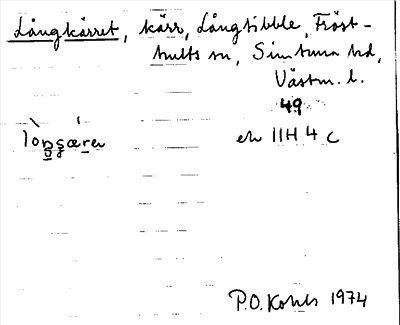 Långkärret, kärr, Långtibble, Fröst-
hults sn, Simtuna hd,
Västm. l.
49
ek 11H 4 c
P.O. Kohls 1974